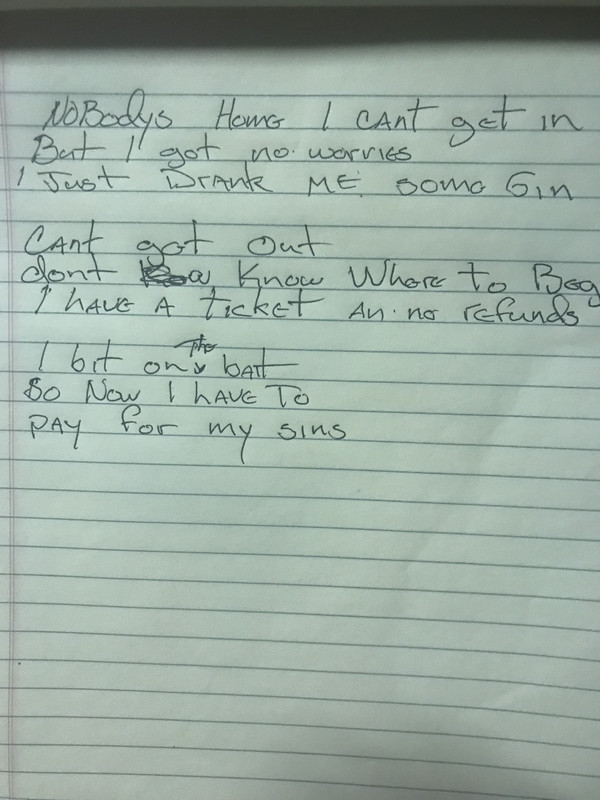 NoBodys Home I CANt get in
But I got no worries
I Just DrANk ME some Gin
CANt get out
dont Know Where to Beg
I HAVE A ticket An no refunds
I bit on the bait
So Now I HAVE To
PAY for my sins